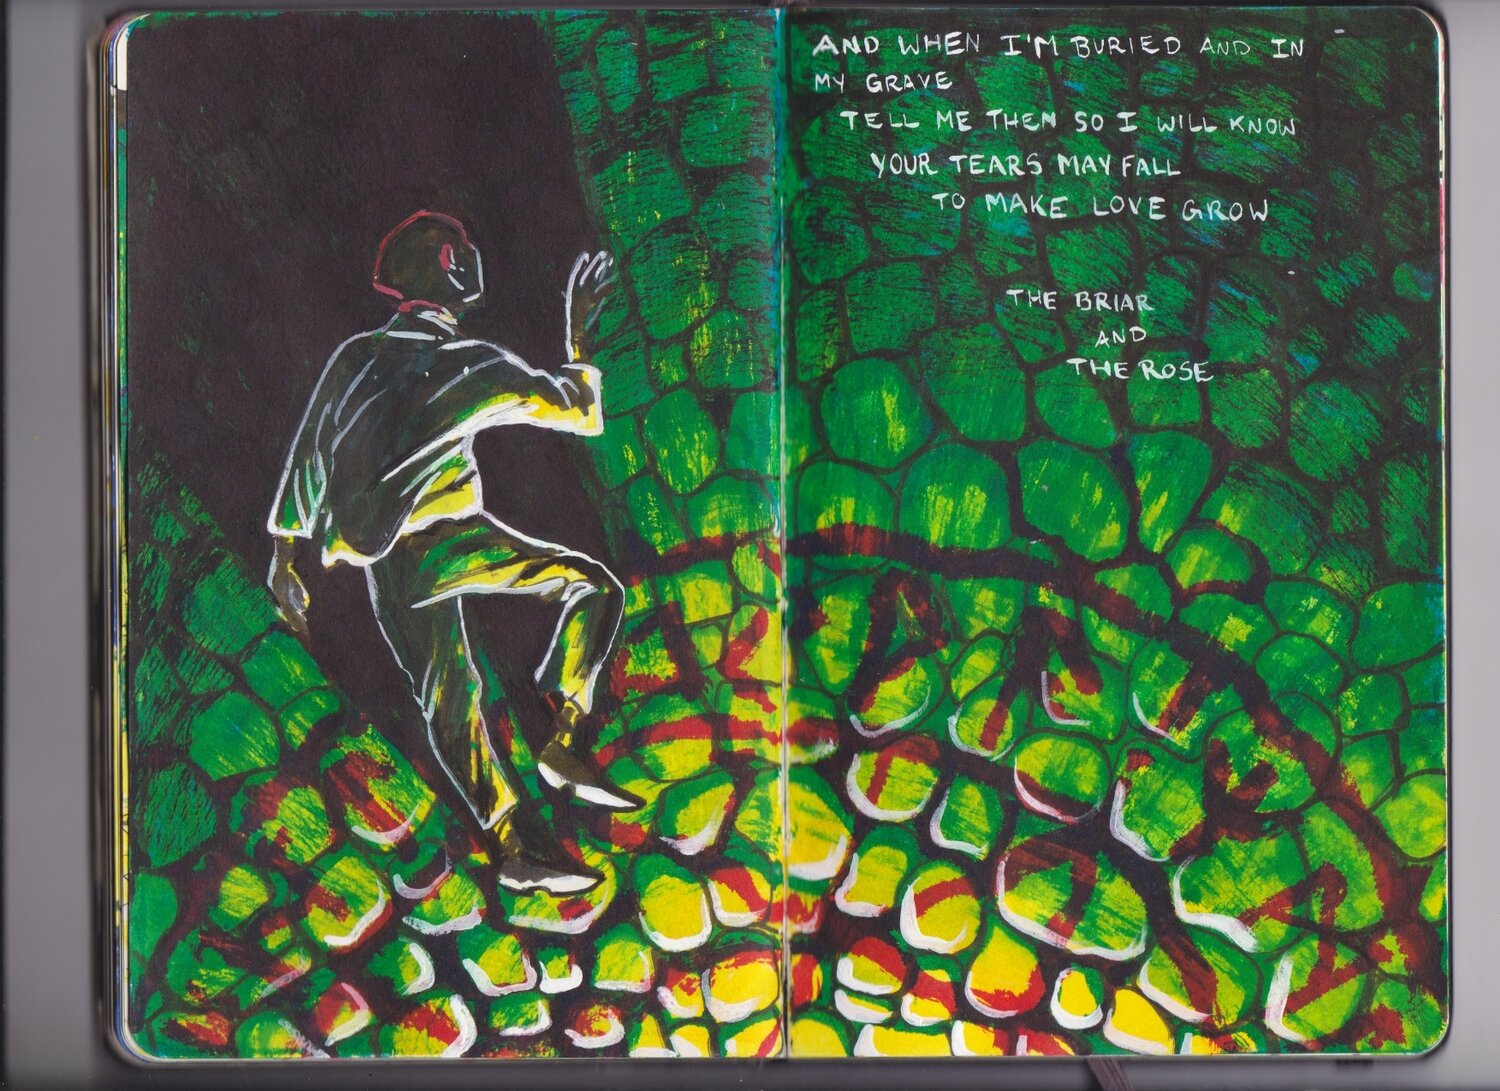 AND WHEN I'M BURIED AND IN
MY GRAVE
TELL ME THEN SO I WILL KNOW
YOUR TEARS MAY FALL
TO MAKE LOVE GROW
THE BRIAR
AND
THE ROSE